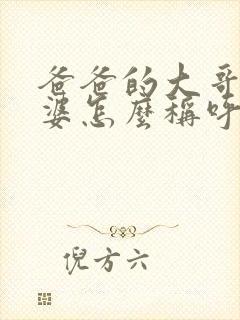 爸爸的大哥
婆怎麼稱呼
倪方六